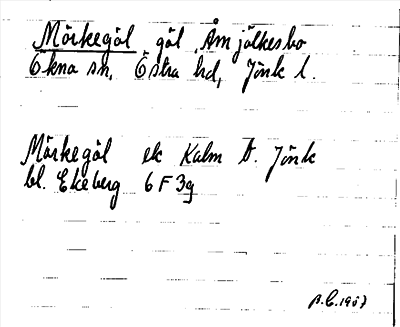 Mörkegöl göl Åmjölkesbo
Ökna sn, Östra hd, Jönk l.
Mörkegöl ek Kalm o. Jönk
bl. Ekeberg 6 F 3g
1967